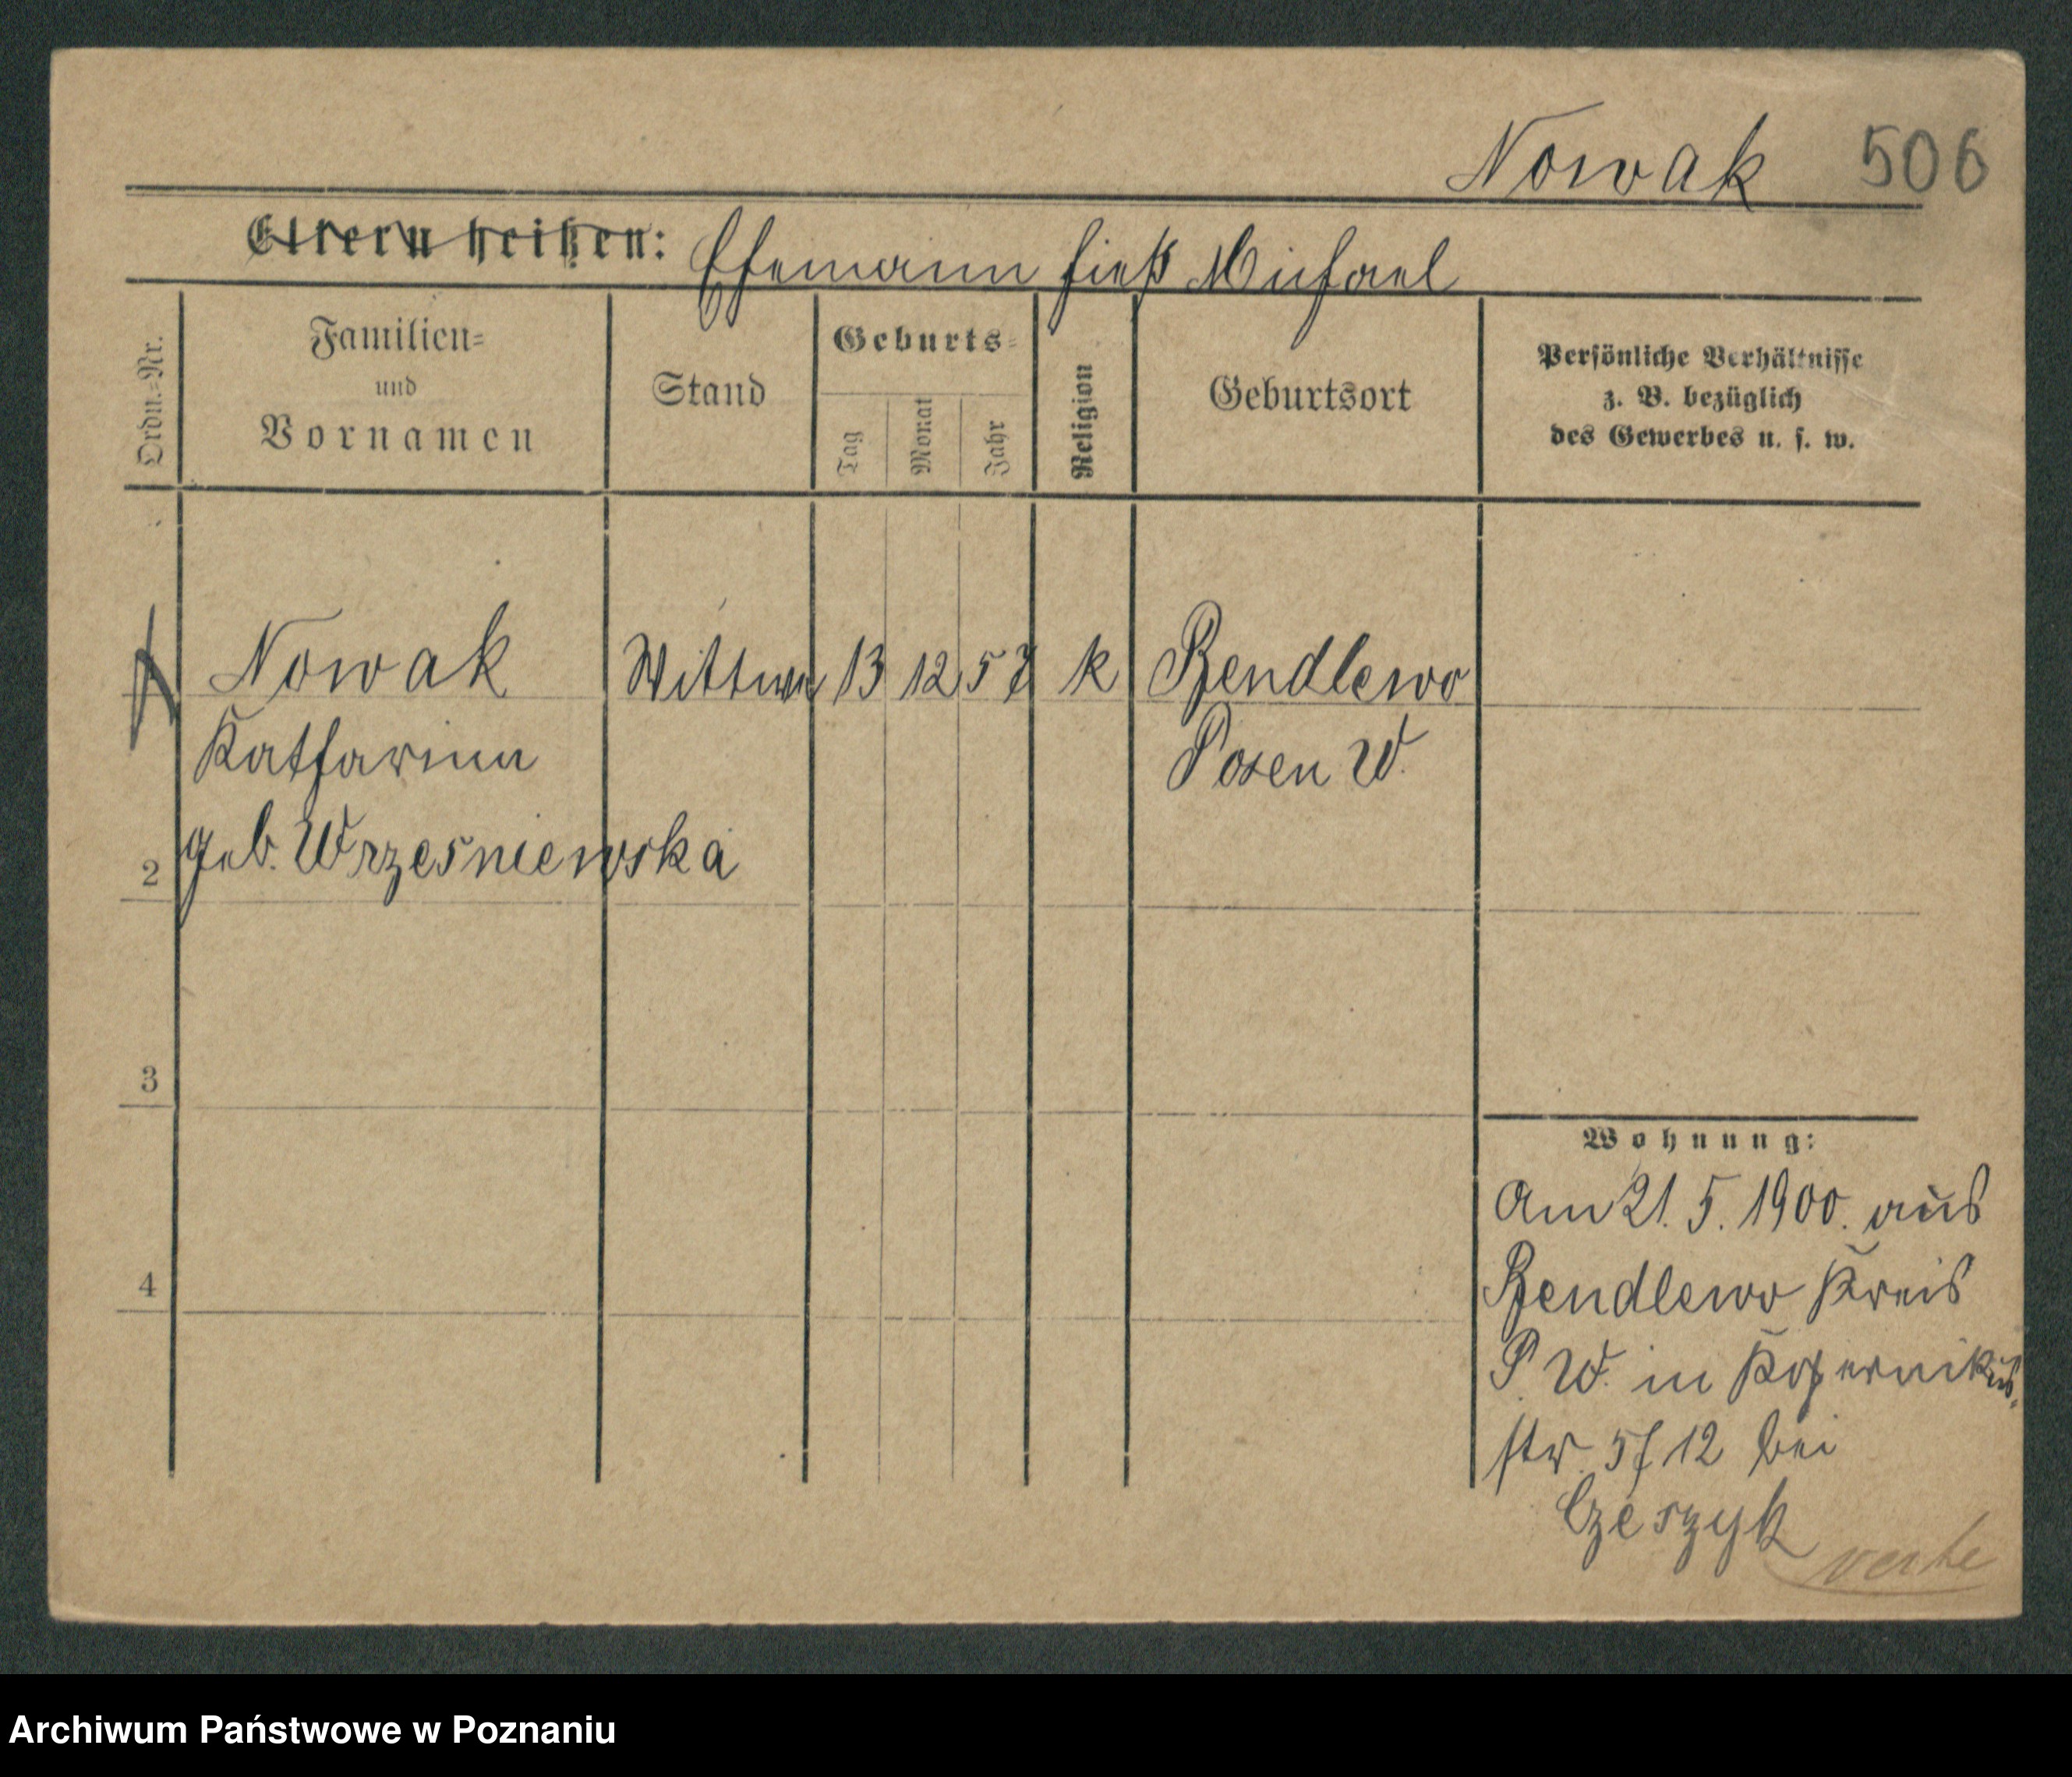 Nowak 506
Eltern heißen: Ehemann hieß Michael
Ordn.=Nr.
Familien=
und
Vornamen
Stand
Geburts=
Tag
Monat
Jahr
Religion
Geburtsort
Persönliche Verhältnisse
z. B. bezüglich
des Gewerbes u. s. w.
Nowak Wittwe 13 12 57 k Bendlewo
Katharina Posen W.
geb. Wrzesniewska
2
3
4
Wohnung:
Am 21. 5. 1900. aus
Bendlewo Kreis
P. W. in Kopernikus-
str. 5/12 bei
Czeszyk
verte
Archiwum Państwowe w Poznaniu